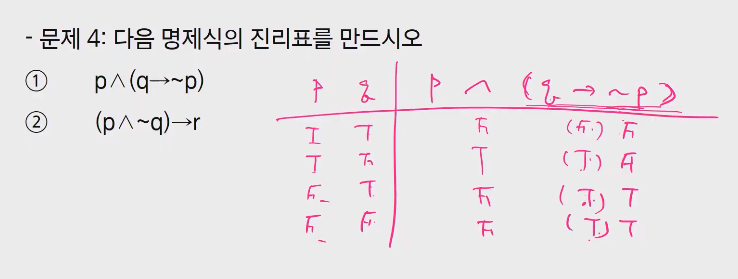 - 문제 4: 다음 명제식의 진리표를 만드시오
① p∧(q→~p)
② (p∧~q)→r
p q p ∧ (q → ~p)
T T F (F.) F
T F T (T.) F
F T F (T.) T
F F F (T.) T